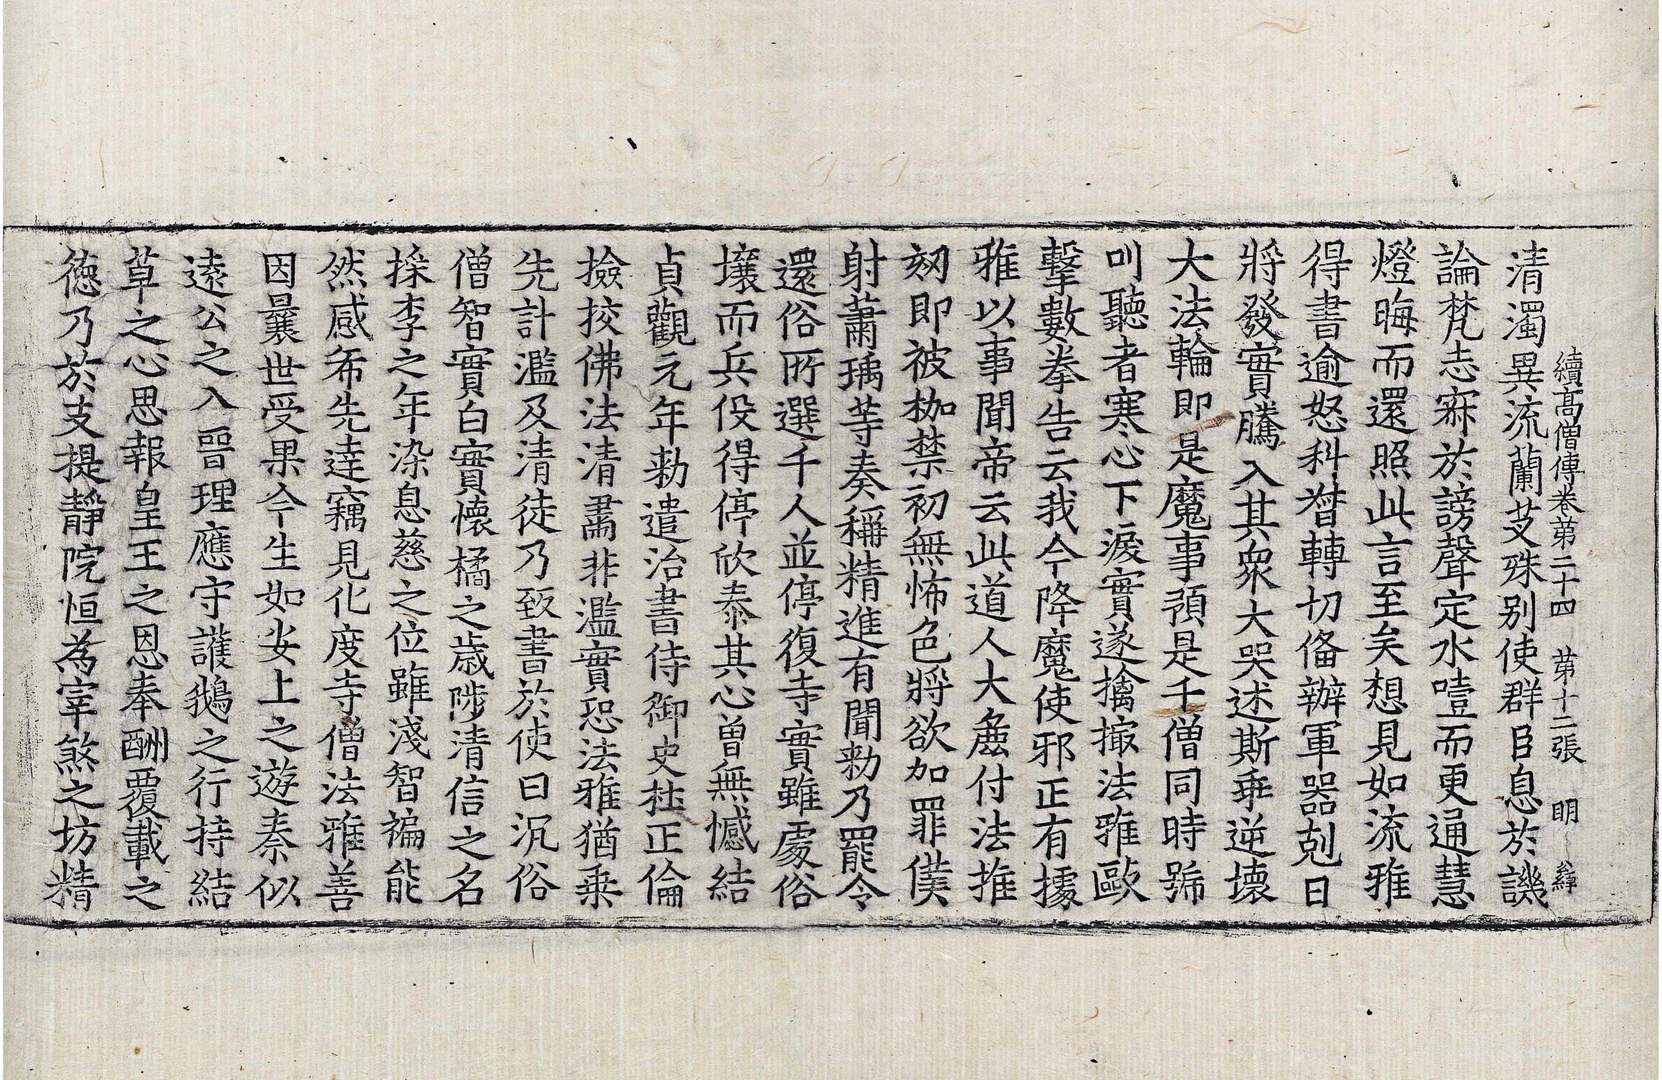 續高僧傳卷第二十四　第十二張　明
清濁異流蘭艾殊別使群臣息於譏
論梵志寐於謗聲定水噎而更通慧
燈晦而還照此言至矣想見如流雅
得書逾怒科督轉切俻辦軍器剋日
將發實騰入其衆大哭述斯乖逆壞
大法輪即是魔事預是千僧同時號
叫聽者寒心下淚實遂擒撮法雅歐
擊數拳告云我今降魔使邪正有據
雅以事聞帝云此道人大麁付法推
刻即被枷禁初無怖色將欲加罪僕
射蕭瑀䓁奏稱精進有聞勑乃罷令
還俗所選千人並停復寺實雖處俗
壤而兵役得停欣泰其心曾無憾結
貞觀元年勑遣治書侍御史杜正倫
撿挍佛法清肅非濫實恐法雅猶乗
先計濫及清徒乃致書於使曰沉俗
僧智實白實懷橘之歲陟清信之名
採李之年染息慈之位雖淺智褊能
然感希先達竊見化度寺僧法雅善
因曩世受果今生如安上之遊秦似
遠公之入晉理應守護鵝之行持結
草之心思報皇王之恩奉酬覆載之
德乃於支提靜院恒為宰煞之坊精